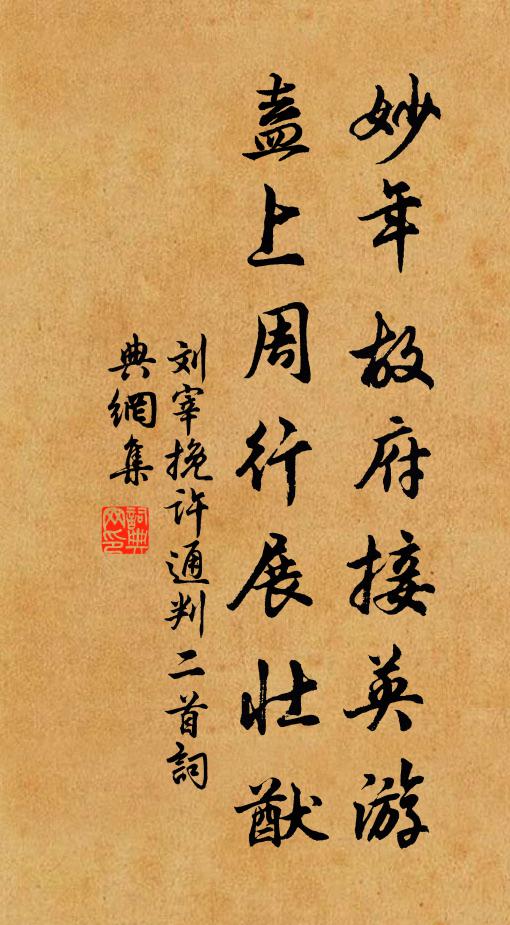 妙年故府接英游
盍上周行展壮猷
刘宰挽许通判二首詞
典網集
詞典網印